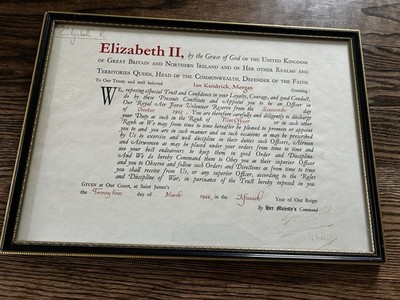 Elizabeth R
Elizabeth II, by the Grace of God of the United Kingdom
of Great Britain and Northern Ireland and of Her other Realms and
Territories Queen, Head of the Commonwealth, Defender of the Faith,
To Our Trusty and well beloved Ian Kendrick Morgan Greeting:
WE, reposing especial Trust and Confidence in your Loyalty, Courage, and good Conduct,
do by these Presents Constitute and Appoint you to be an Officer in
Our Royal Air Force Volunteer Reserve from the day
October 19 . You are therefore carefully and diligently to discharge
your Duty as such in the Rank of Pilot Officer or in such other
Rank as We may from time to time hereafter be pleased to promote or appoint
you to and you are in such manner and on such occasions as may be prescribed
by Us to exercise and well discipline in their duties such Officers, Airmen
and Airwomen as may be placed under your orders from time to time and
use your best endeavours to keep them in good Order and Discipline.
And We do hereby Command them to Obey you as their superior Officer
and you to Observe and follow such Orders and Directions as from time to time
you shall receive from Us, or any superior Officer, according to the Rules
and Discipline of War, in pursuance of the Trust hereby reposed in you.
Given at Our Court, at Saint James's
the Twenty first day of March 19 , in the Year of Our Reign
By Her Majesty's Command